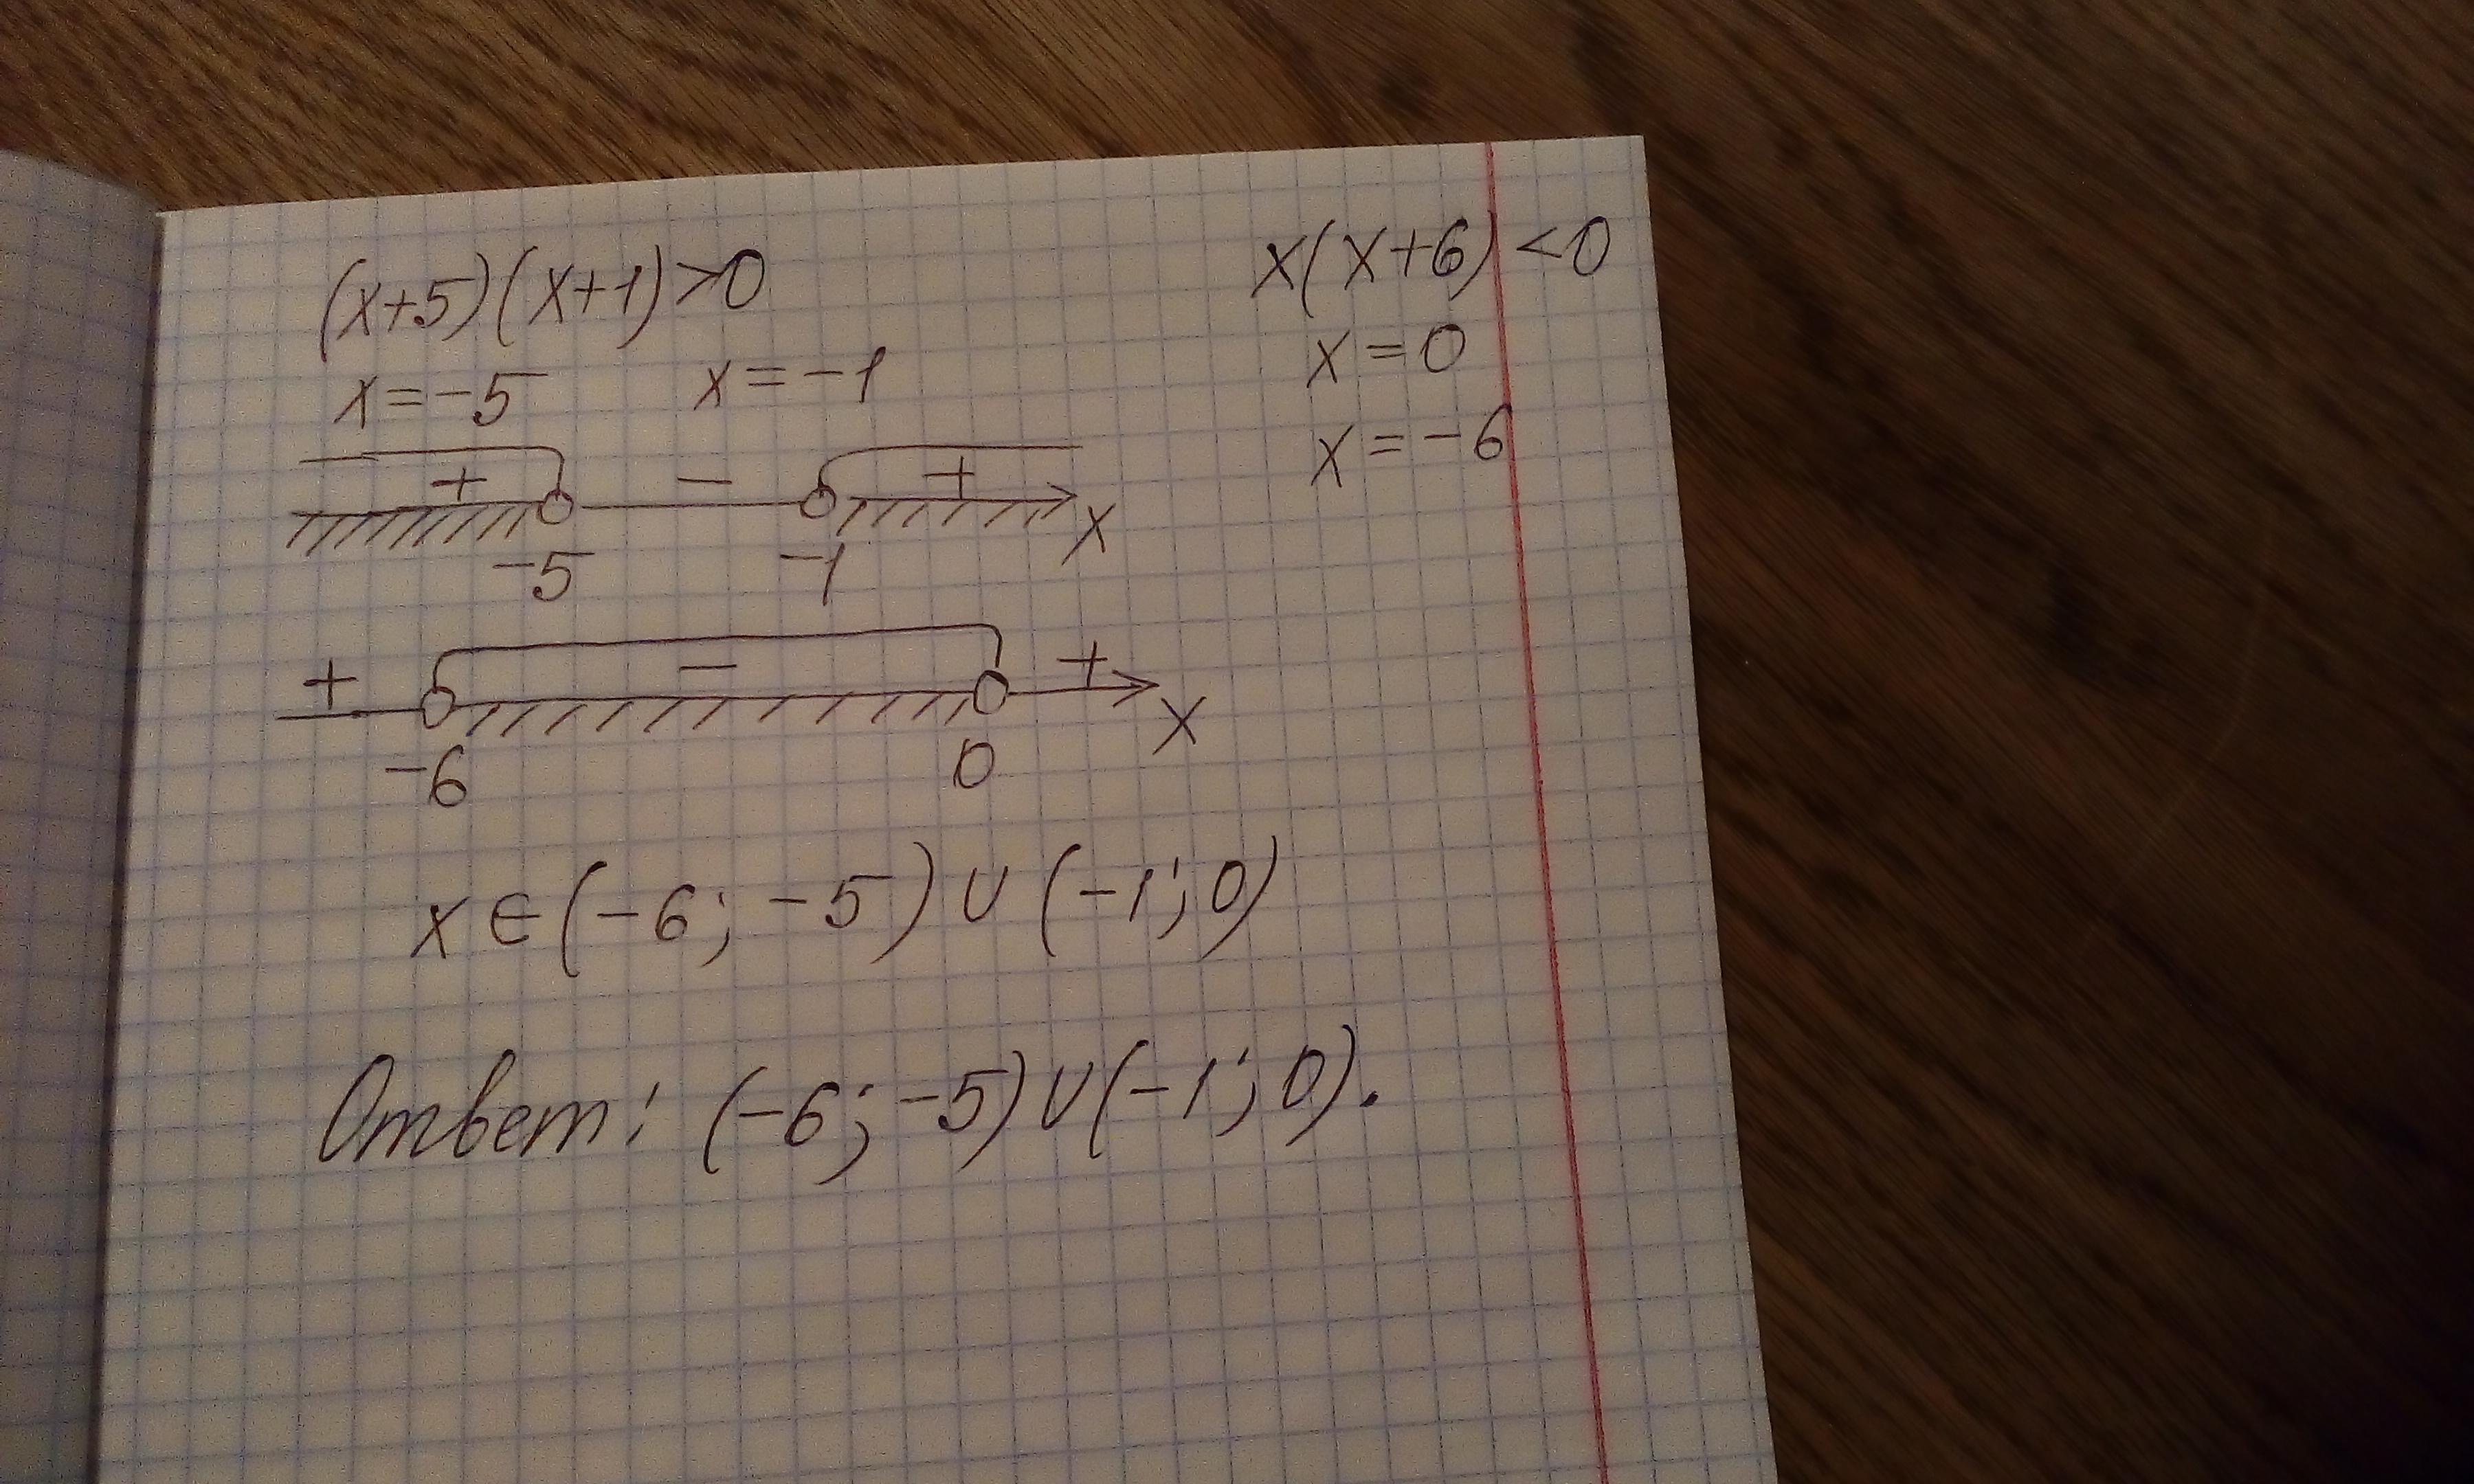 (x+5)(x+1)>0
x=-5 x=-1
x(x+6)<0
x=0
x=-6
+ - +
-5 -1 x
+ - +
-6 0 x
x∈(-6; -5)∪(-1; 0)
Ответ: (-6; -5)∪(-1; 0).